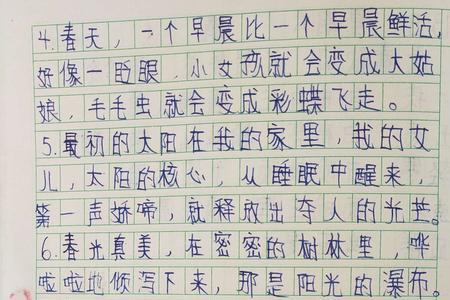 4.春天，一个早晨比一个早晨鲜活，
好像一眨眼，小女孩就会变成大姑
娘，毛毛虫就会变成彩蝶飞走。
5.最初的太阳在我的家里，我的女
儿，太阳的核心，从睡眠中醒来
第一声娇啼，就释放出夺人的光芒。
6.春光真美，在密密的树林里，哗
啦啦地倾泻下来，那是阳光的瀑布。